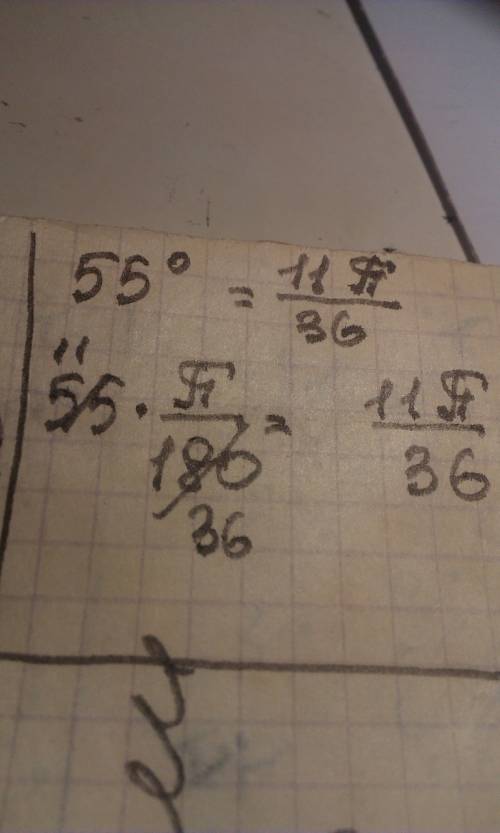 55° = 11π/36
11
55 · π/180 = 11π/36
36